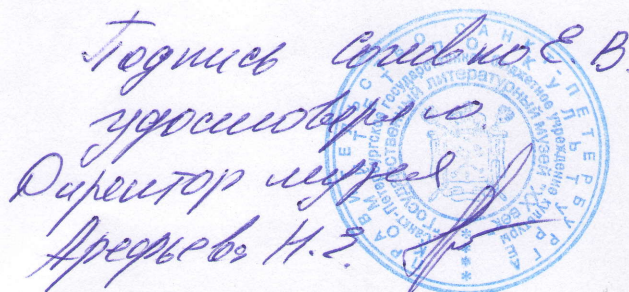 Подпись Соловко Е. В.
удостоверяю.
Директор музея
Арефьева Н. Э.
ПРАВИТЕЛЬСТВО САНКТ-ПЕТЕРБУРГА
Санкт-Петербургское государственное бюджетное учреждение культуры
Государственный литературный музей "XX век"